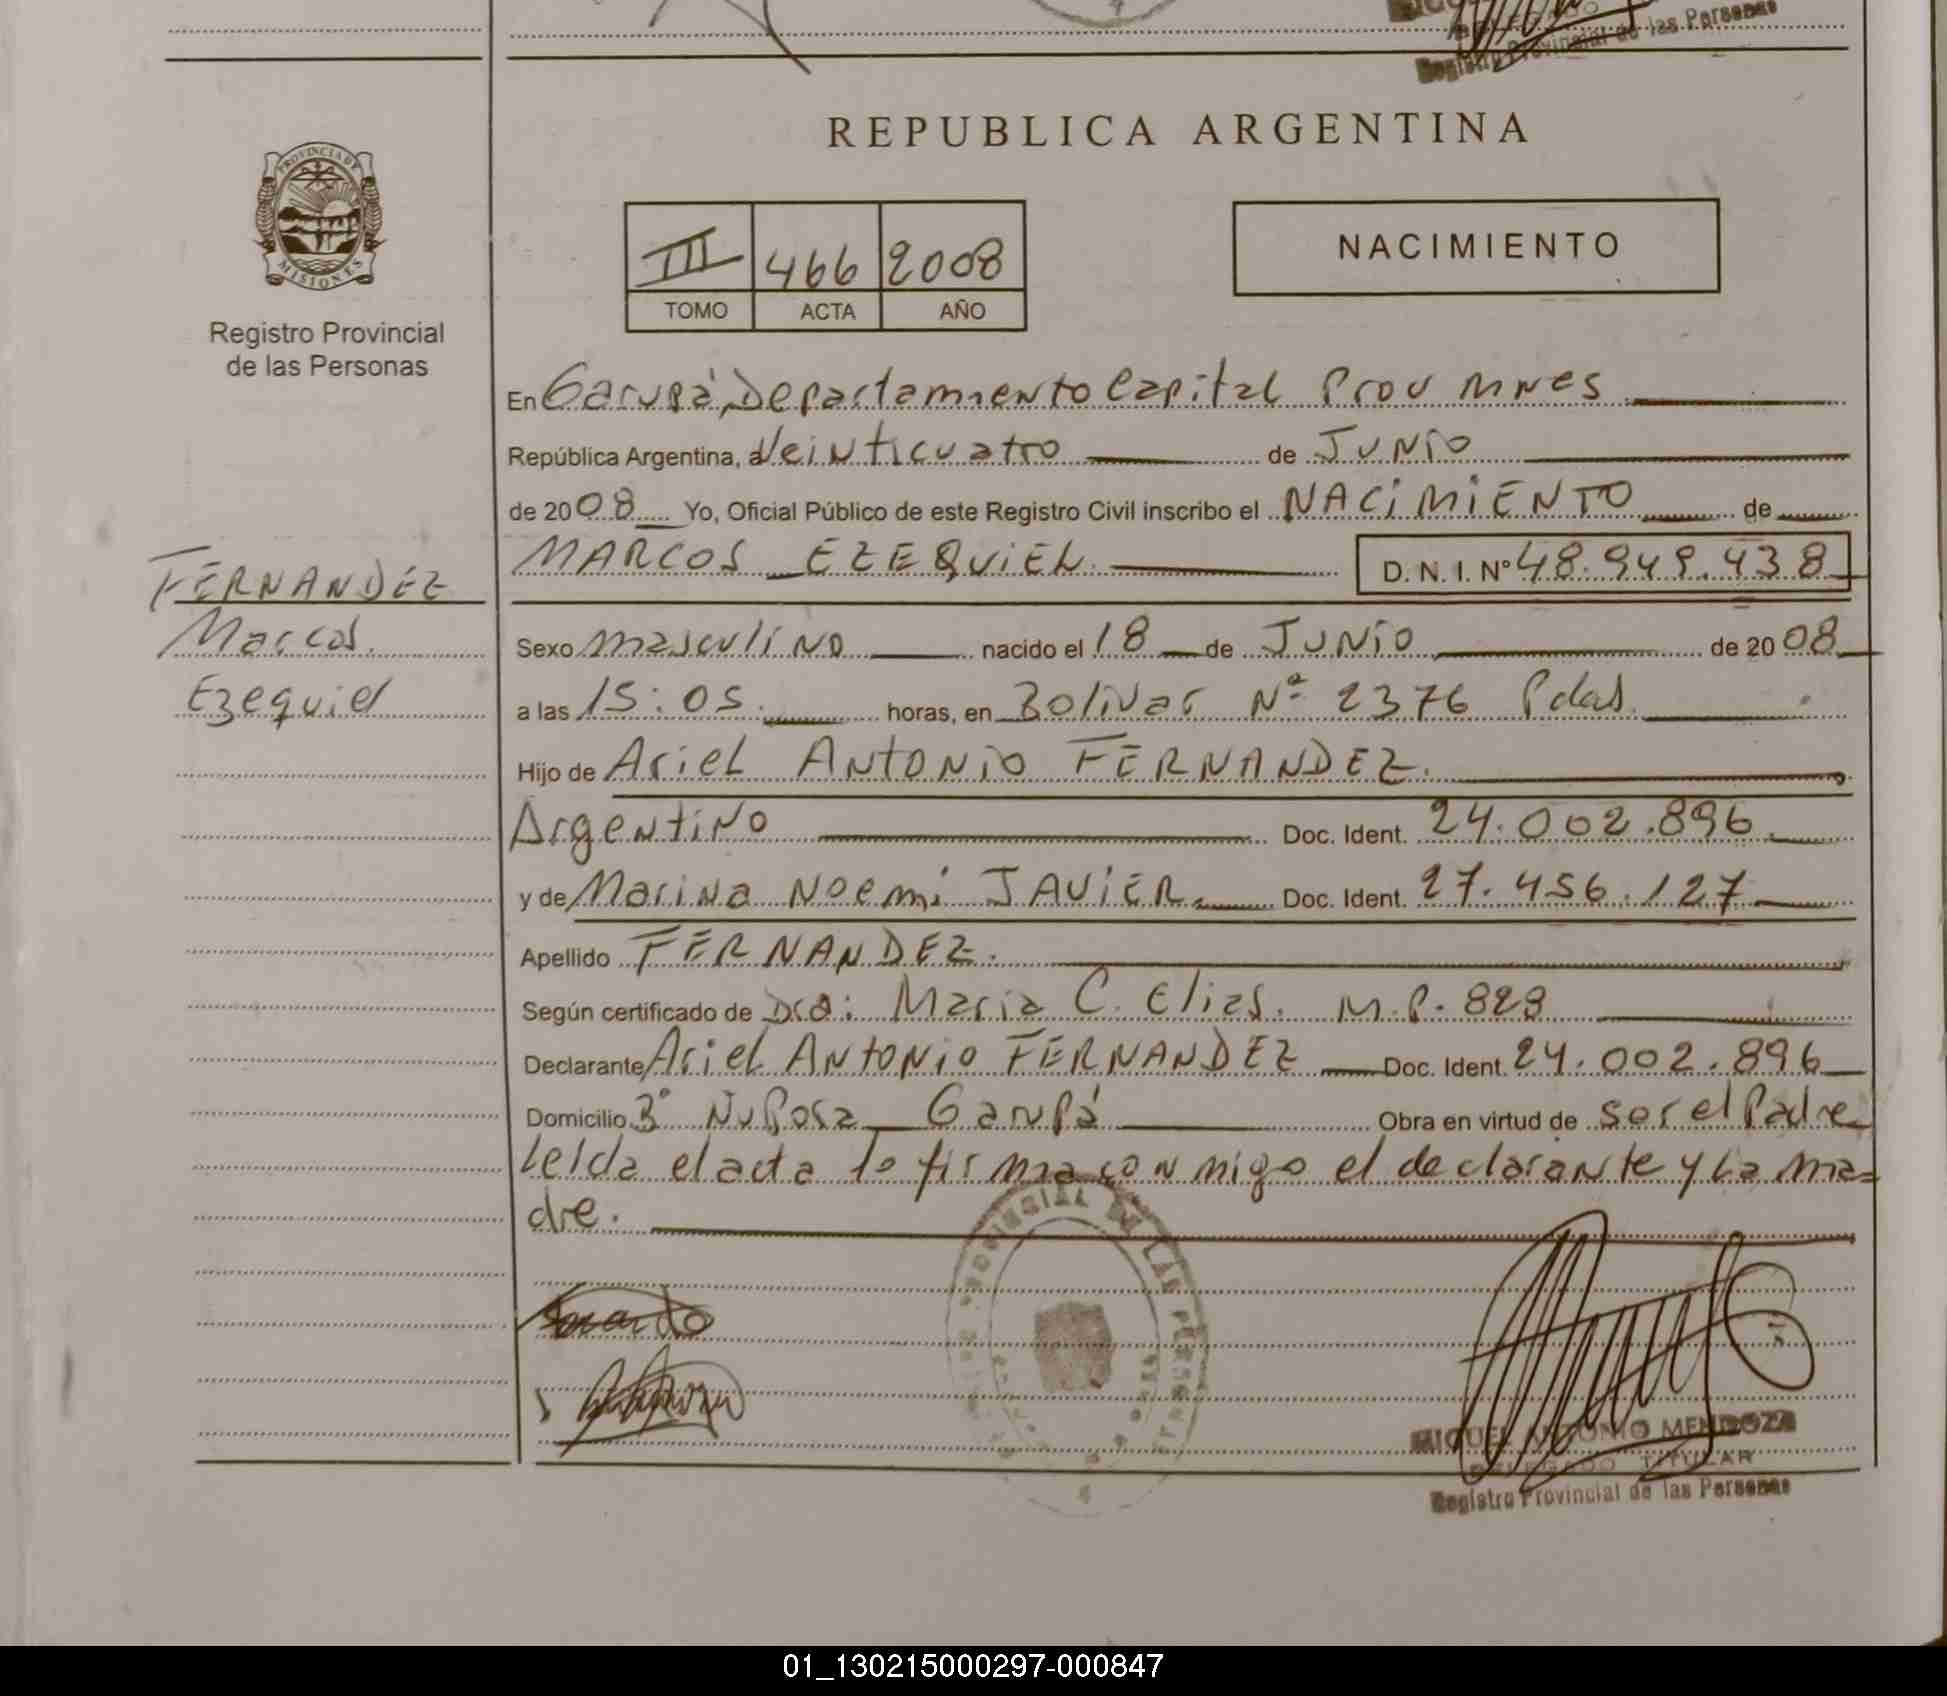 Registro Provincial de las Personas
REPUBLICA ARGENTINA
PROVINCIA DE
MISIONES
Registro Provincial
de las Personas
III 466 2008
TOMO ACTA AÑO
NACIMIENTO
En Garupá, Departamiento Capital Prov MNes
República Argentina, a Veinticuatro de JUNIO
de 2008 Yo, Oficial Público de este Registro Civil inscribo el NACIMIENTO de
MARCOS EZEQUIEL D. N. I. Nº 48.949.438
FERNANDEZ
Marcos
Ezequiel
Sexo masculino nacido el 18 de JUNIO de 2008
a las 15:05 horas, en Bolivar Nº 2376 Pdas
Hijo de Ariel ANTONIO FERNANDEZ.
Argentino Doc. Ident. 24.002.896
y de Marina Noemi JAVIER Doc. Ident. 27.456.127
Apellido FERNANDEZ.
Según certificado de Dra: Maria C. Elias. M.P. 829
Declarante Ariel ANTONIO FERNANDEZ Doc. Ident. 24.002.896
Domicilio Bº Ñu Pora Garupá Obra en virtud de ser el Padre
Leída el acta lo firma conmigo el declarante y la ma=
dre.
PROVINCIAL DE LAS PERSONAS
MIGUEL ANTONIO MENDOZA
DELEGADO TITULAR
Registro Provincial de las Personas
01_130215000297-000847